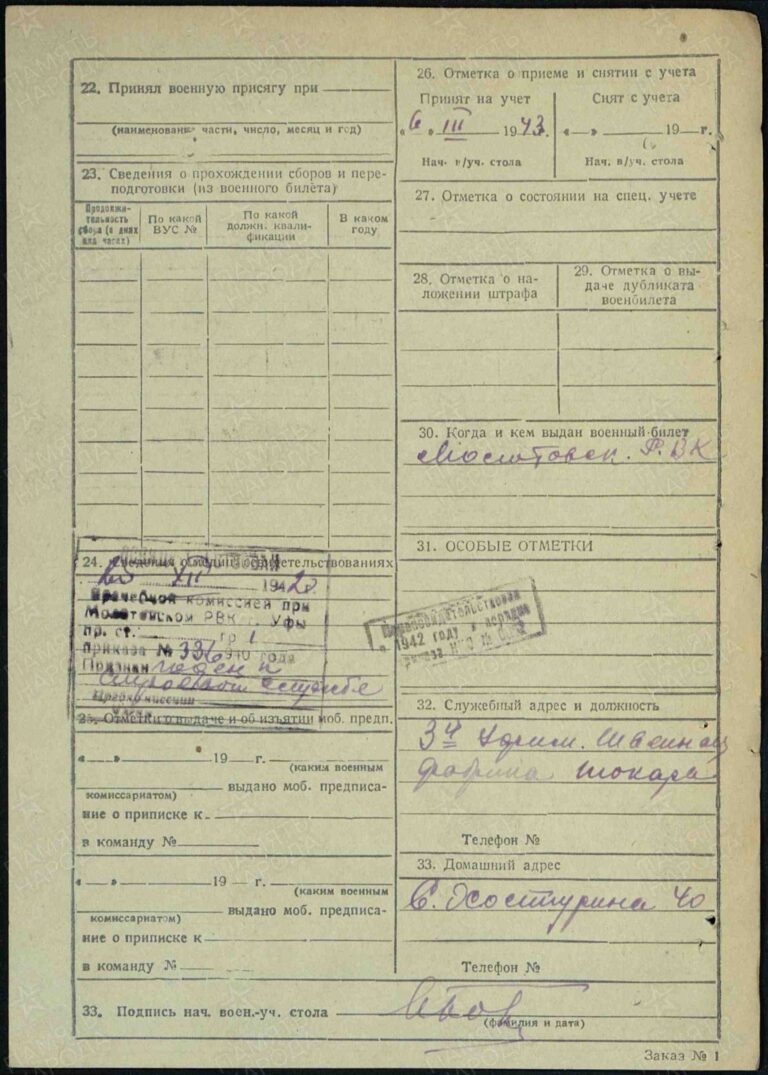 22. Принял военную присягу при
(наименование части, число, месяц и год)
23. Сведения о прохождении сборов и пере-
подготовки (из военного билета)
Продолжи-
тельность
сбора (в днях
или часах)
По какой
ВУС №
По какой
должн. квали-
фикации
В каком
году
24. Сведения о медиц. освидетельствованиях
XII 1942
Врачебной комиссией при
Молотовском РВК г. Уфы
пр. ст. гр 1
приказа № 336 1940 года
Признан годен к
строевой службе
25. Отметки о выдаче и об изъятии моб. предп.
« » 19 г.
(каким военным
комиссариатом) выдано моб. предписа-
ние о приписке к
в команду №
« » 19 г.
(каким военным
комиссариатом) выдано моб. предписа-
ние о приписке к
в команду №
26. Отметка о приеме и снятии с учета
Принят на учет
«6» III 1943.
Нач. в/уч. стола
Снят с учета
« » 19 г.
Нач. в/уч. стола
27. Отметка о состоянии на спец. учете
28. Отметка о на-
ложении штрафа
29. Отметка о вы-
даче дубликата
военбилета
30. Когда и кем выдан военный билет
Молотовск. РВК
31. ОСОБЫЕ ОТМЕТКИ
Переосвидетельствован
в 1942 году в порядке
приказа НКО №
32. Служебный адрес и должность
Швейная
фабрика токарь
Телефон №
33. Домашний адрес
С. Халтурина 40
Телефон №
33. Подпись нач. воен.-уч. стола
(фамилия и дата)
Заказ № 1